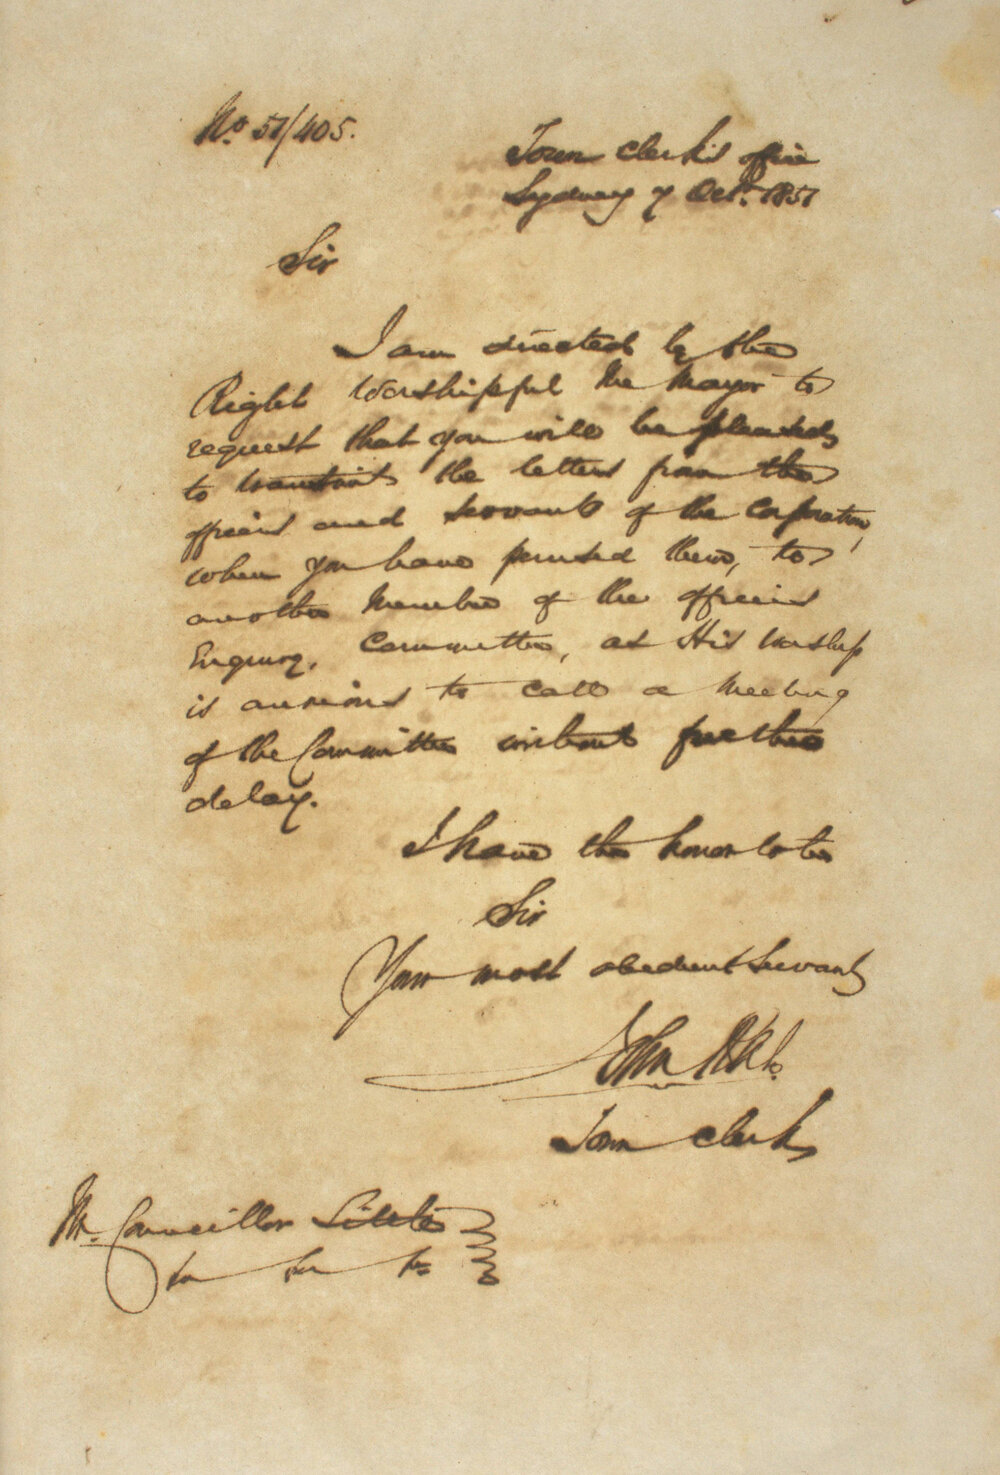 No. 51/405.
Town Clerk's office
Sydney 7 Octr. 1851
Sir
I am directed by the
Right Worshipful the Mayor to
request that you will be pleased
to transmit the letters from the
officers and servants of the Corporation,
when you have perused them, to
another Member of the officers
Enquiry. Committee, as His Worship
is anxious to call a Meeting
of the Committee without further
delay.
I have the honor to be
Sir
Your most obedient Servant
John
Town Clerk
Mr. Councillor Little